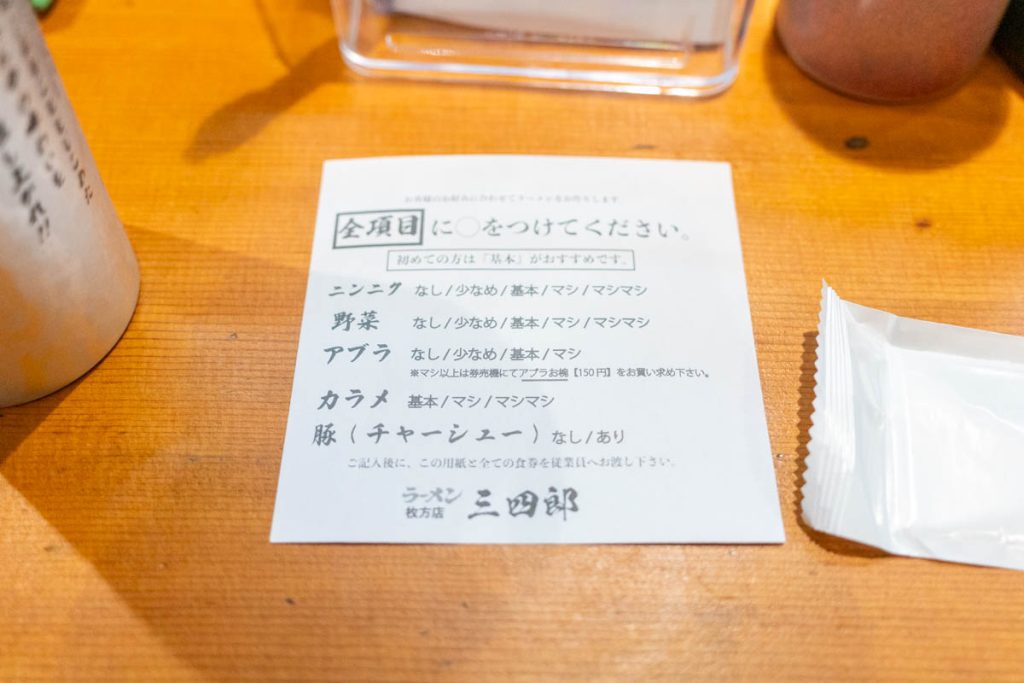 お客様のお好みに合わせてラーメンをお作りします
全項目に〇をつけてください。
初めての方は「基本」がおすすめです。
ニンニク なし/少なめ/基本/マシ/マシマシ
野菜 なし/少なめ/基本/マシ/マシマシ
アブラ なし/少なめ/基本/マシ
※マシ以上は券売機にてアブラお椀【150円】をお買い求め下さい。
カラメ 基本/マシ/マシマシ
豚(チャーシュー) なし/あり
ご記入後に、この用紙と全ての食券を従業員へお渡し下さい。
ラーメン 三四郎
枚方店